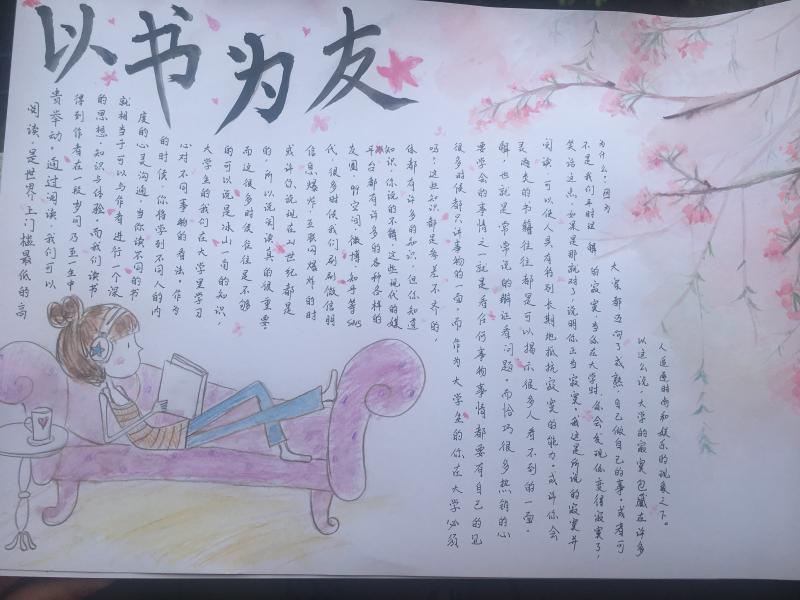 以书为友
阅读，是世界上门槛最低的高
贵举动。通过阅读，我们可以
得到作者在一段时间乃至一生中
的思想、知识与体验。而我们读书
就相当于可以与作者进行一个深
度的心灵沟通。当你读不同的书
的时候，你将学到不同人的内
心对不同事物的看法。作为
大学生的我们在大学里学习
的可以说是冰山一角的知识，
而这很多时候往往是不够
的，所以说阅读真的很重要
或许你说现在21世纪都是
信息爆炸，互联网爆炸的时
代，很多时候我们刷刷微信朋
友圈，qq空间，微博，知乎等SNS
平台都有许多的各种各样的
知识，你说的不错，这些现代的媒
体都有许多的知识，但你知道
吗？这些知识都是参差不齐的，
很多时候都只讲事物的一面，而作为大学生的你在大学必须
要学会的事情之一就是看任何事物事情都要有自己的见
解，也就是常常说的辩证看问题。而恰巧很多热销的心
灵类的书籍往往都是可以揭示很多人看不到的一面。
阅读，可以使人具有特别长期地抵抗寂寞的能力。或许你会
笑话这点，如果是那就对了，说明你正当寂寞。我这里所说的寂寞并
不是我们平时理解的寂寞，当你在大学时，你会发现你变得寂寞了，
为什么？因为
大家都迈向了成熟，自己做自己的事，或者可
以这么说，大学的寂寞包藏在许多
人追逐时尚和娱乐的现象之下。